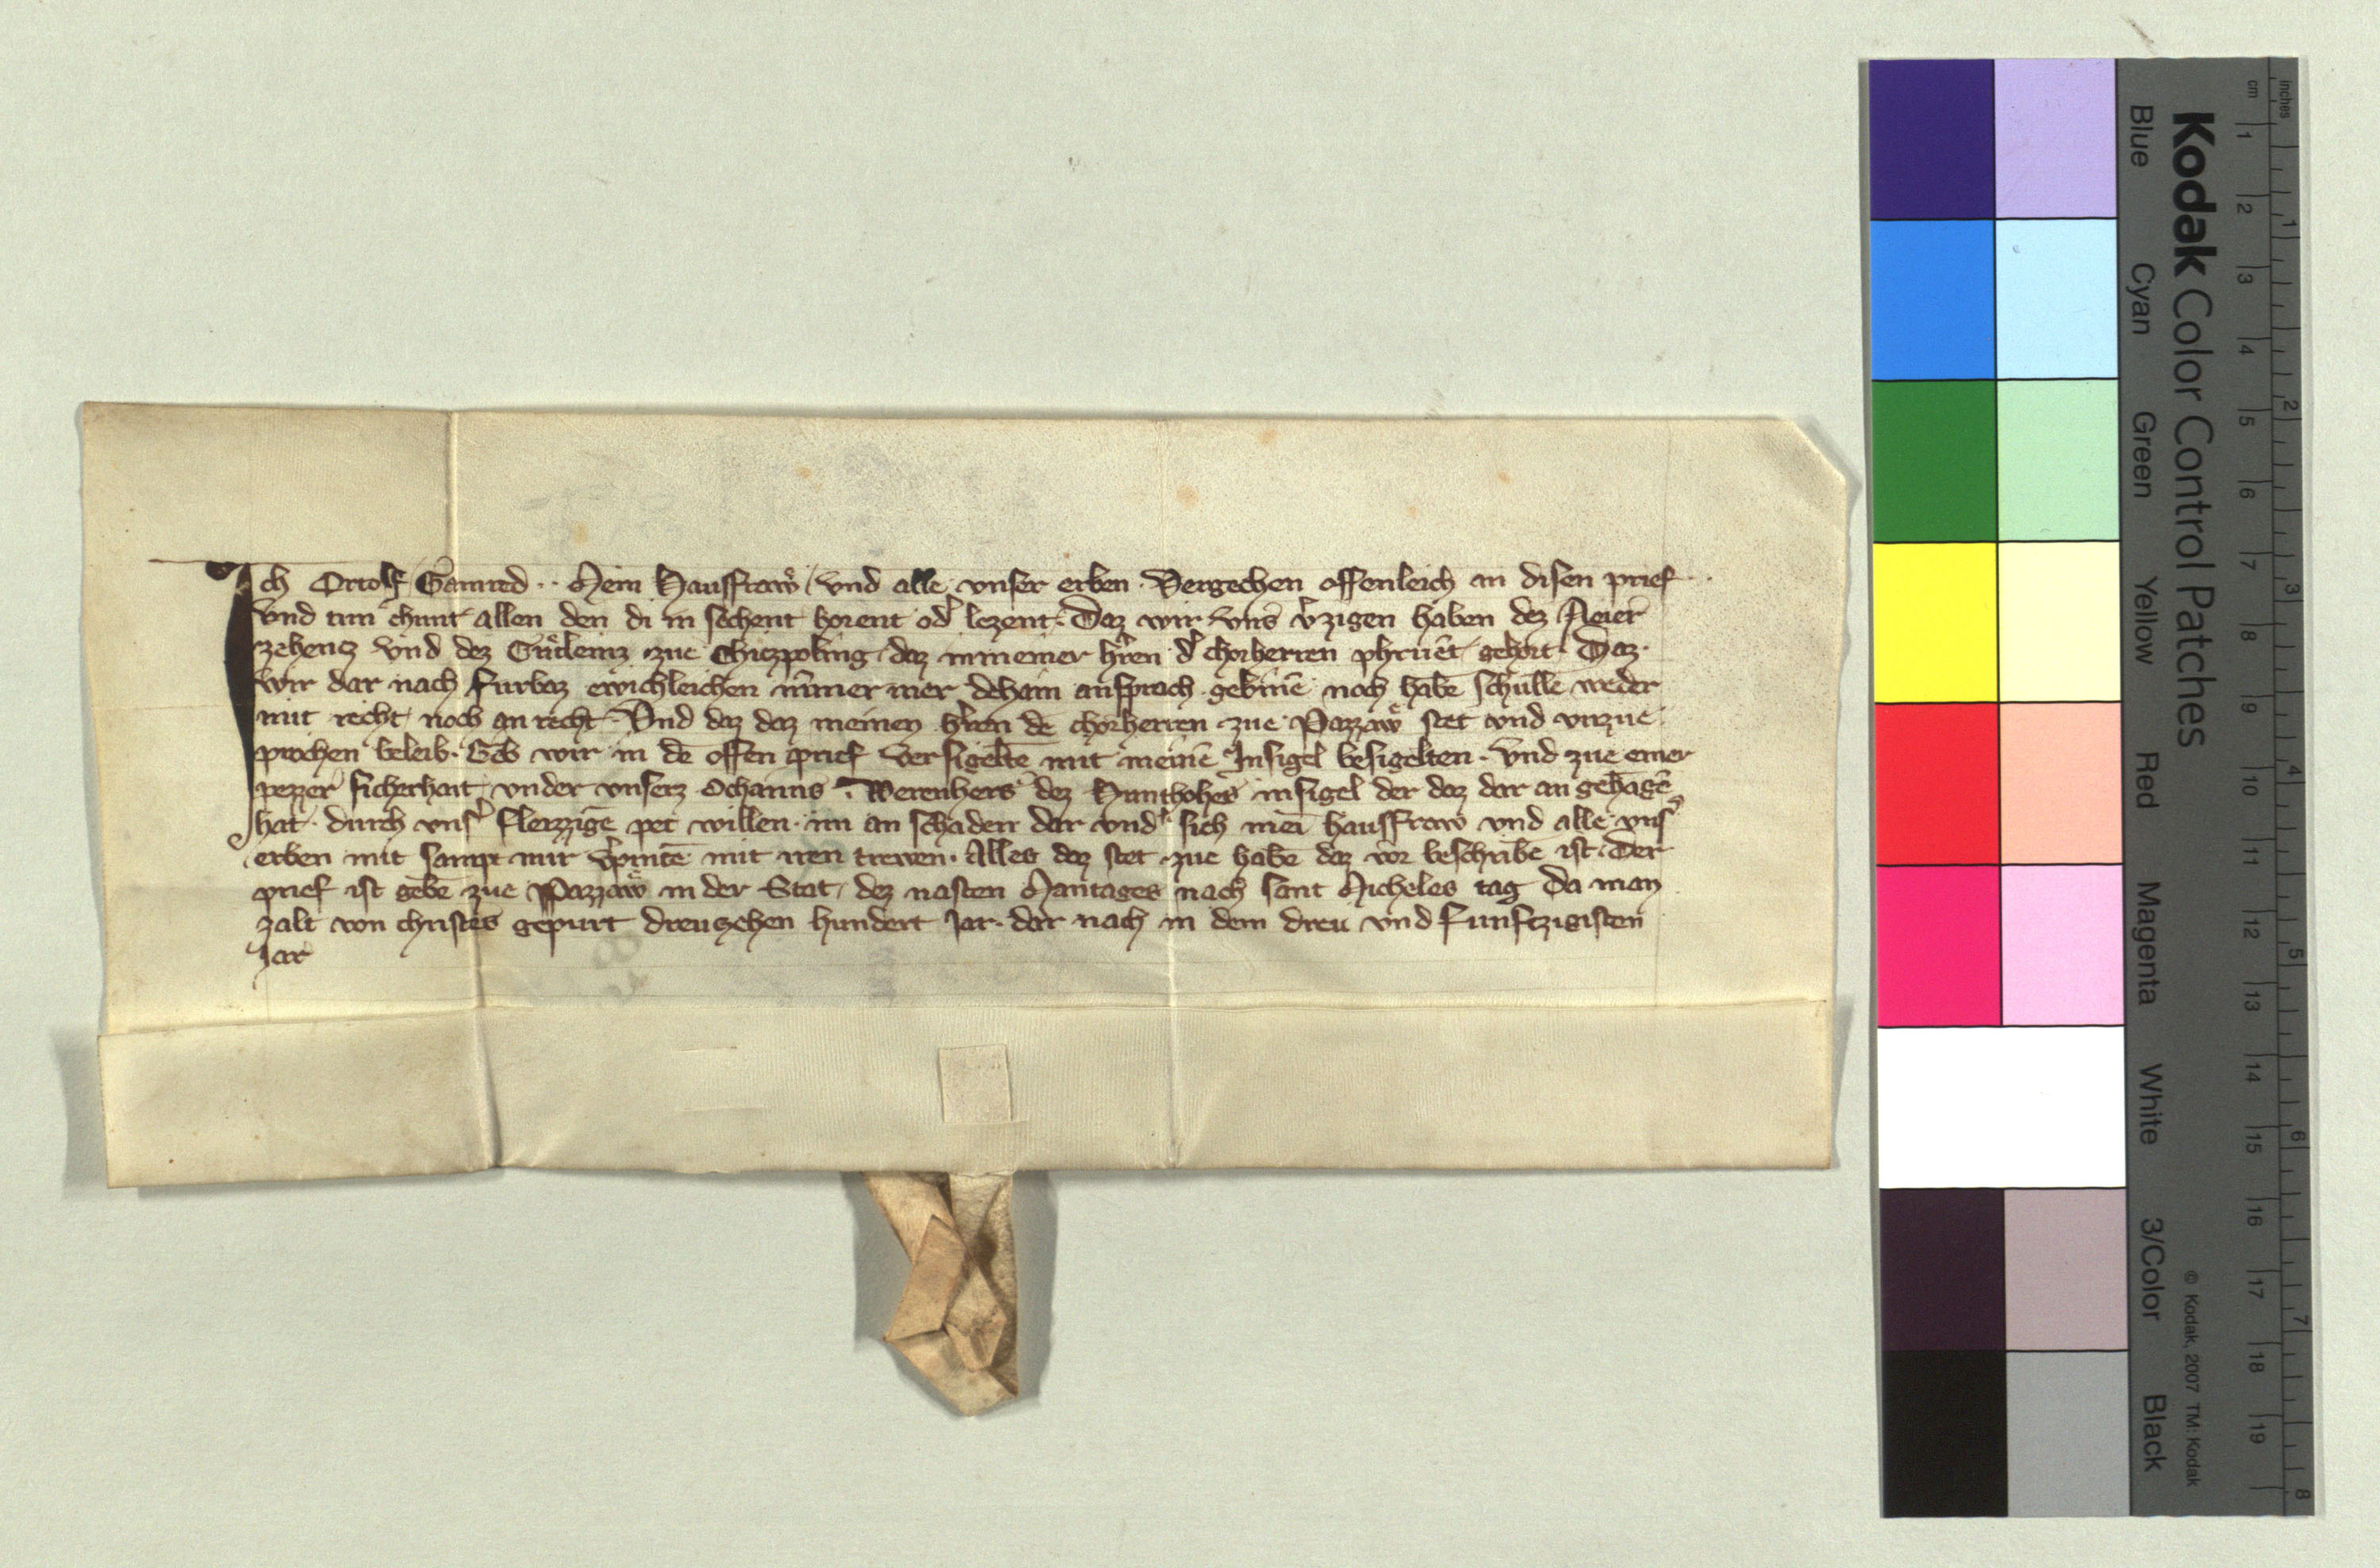 Ich Ortolf Gamred ·· Mein Hausfraẘ / vnd alle vnser erben · Vergechen offenleich an disen prief ··
vnd tun chunt allen den di in sechent horent od' lezent · Daz wir vns v'zigen haben dez Meier
zehencz vnd dez Gůtleinz zue Chiczpoling · daz in meiner h'ren d' chorherren phruent gehort · Daz ·
wir dar nach furbaz ewichleichen nimer mer dehain ansprach gebinē noch habē schullē weder
mit recht noch an recht · Vnd daz daz meinen h'ren dē chorherren zue Pazzaẘ stet vnd vnzue
prochen beleib · Geb wir in dē offen prief versigeltē mit meinē Insigel besigelten · vnd zue einer
pezzer sicherhait vnder vnserz Ochaims · Werenhers dez insigel der daz dar an gehāgē
hat · durch vns' fleizzigē pet willen · im an schaden dar vnd' sich mei hausfraw vnd alle vns'
erben mit sampt mir v'pintē mit iren trewen · Alles daz stet zue habē daz vor beschribē ist · Der
prief ist gebē zue Pazzaẘ in der Stat · dez nasten Mantages nach sant Micheles tag Da man
zalt von christes gepurt dreuzehen hundert Jar · dar nach in dem dreu vnd funfczigisten
Jar
Kodak Color Control Patches
Blue Cyan Green Yellow Red Magenta White 3/Color Black
© Kodak, 2007 TM: Kodak
cm 1 2 3 4 5 6 7 8 9 10 11 12 13 14 15 16 17 18 19
inches 1 2 3 4 5 6 7 8